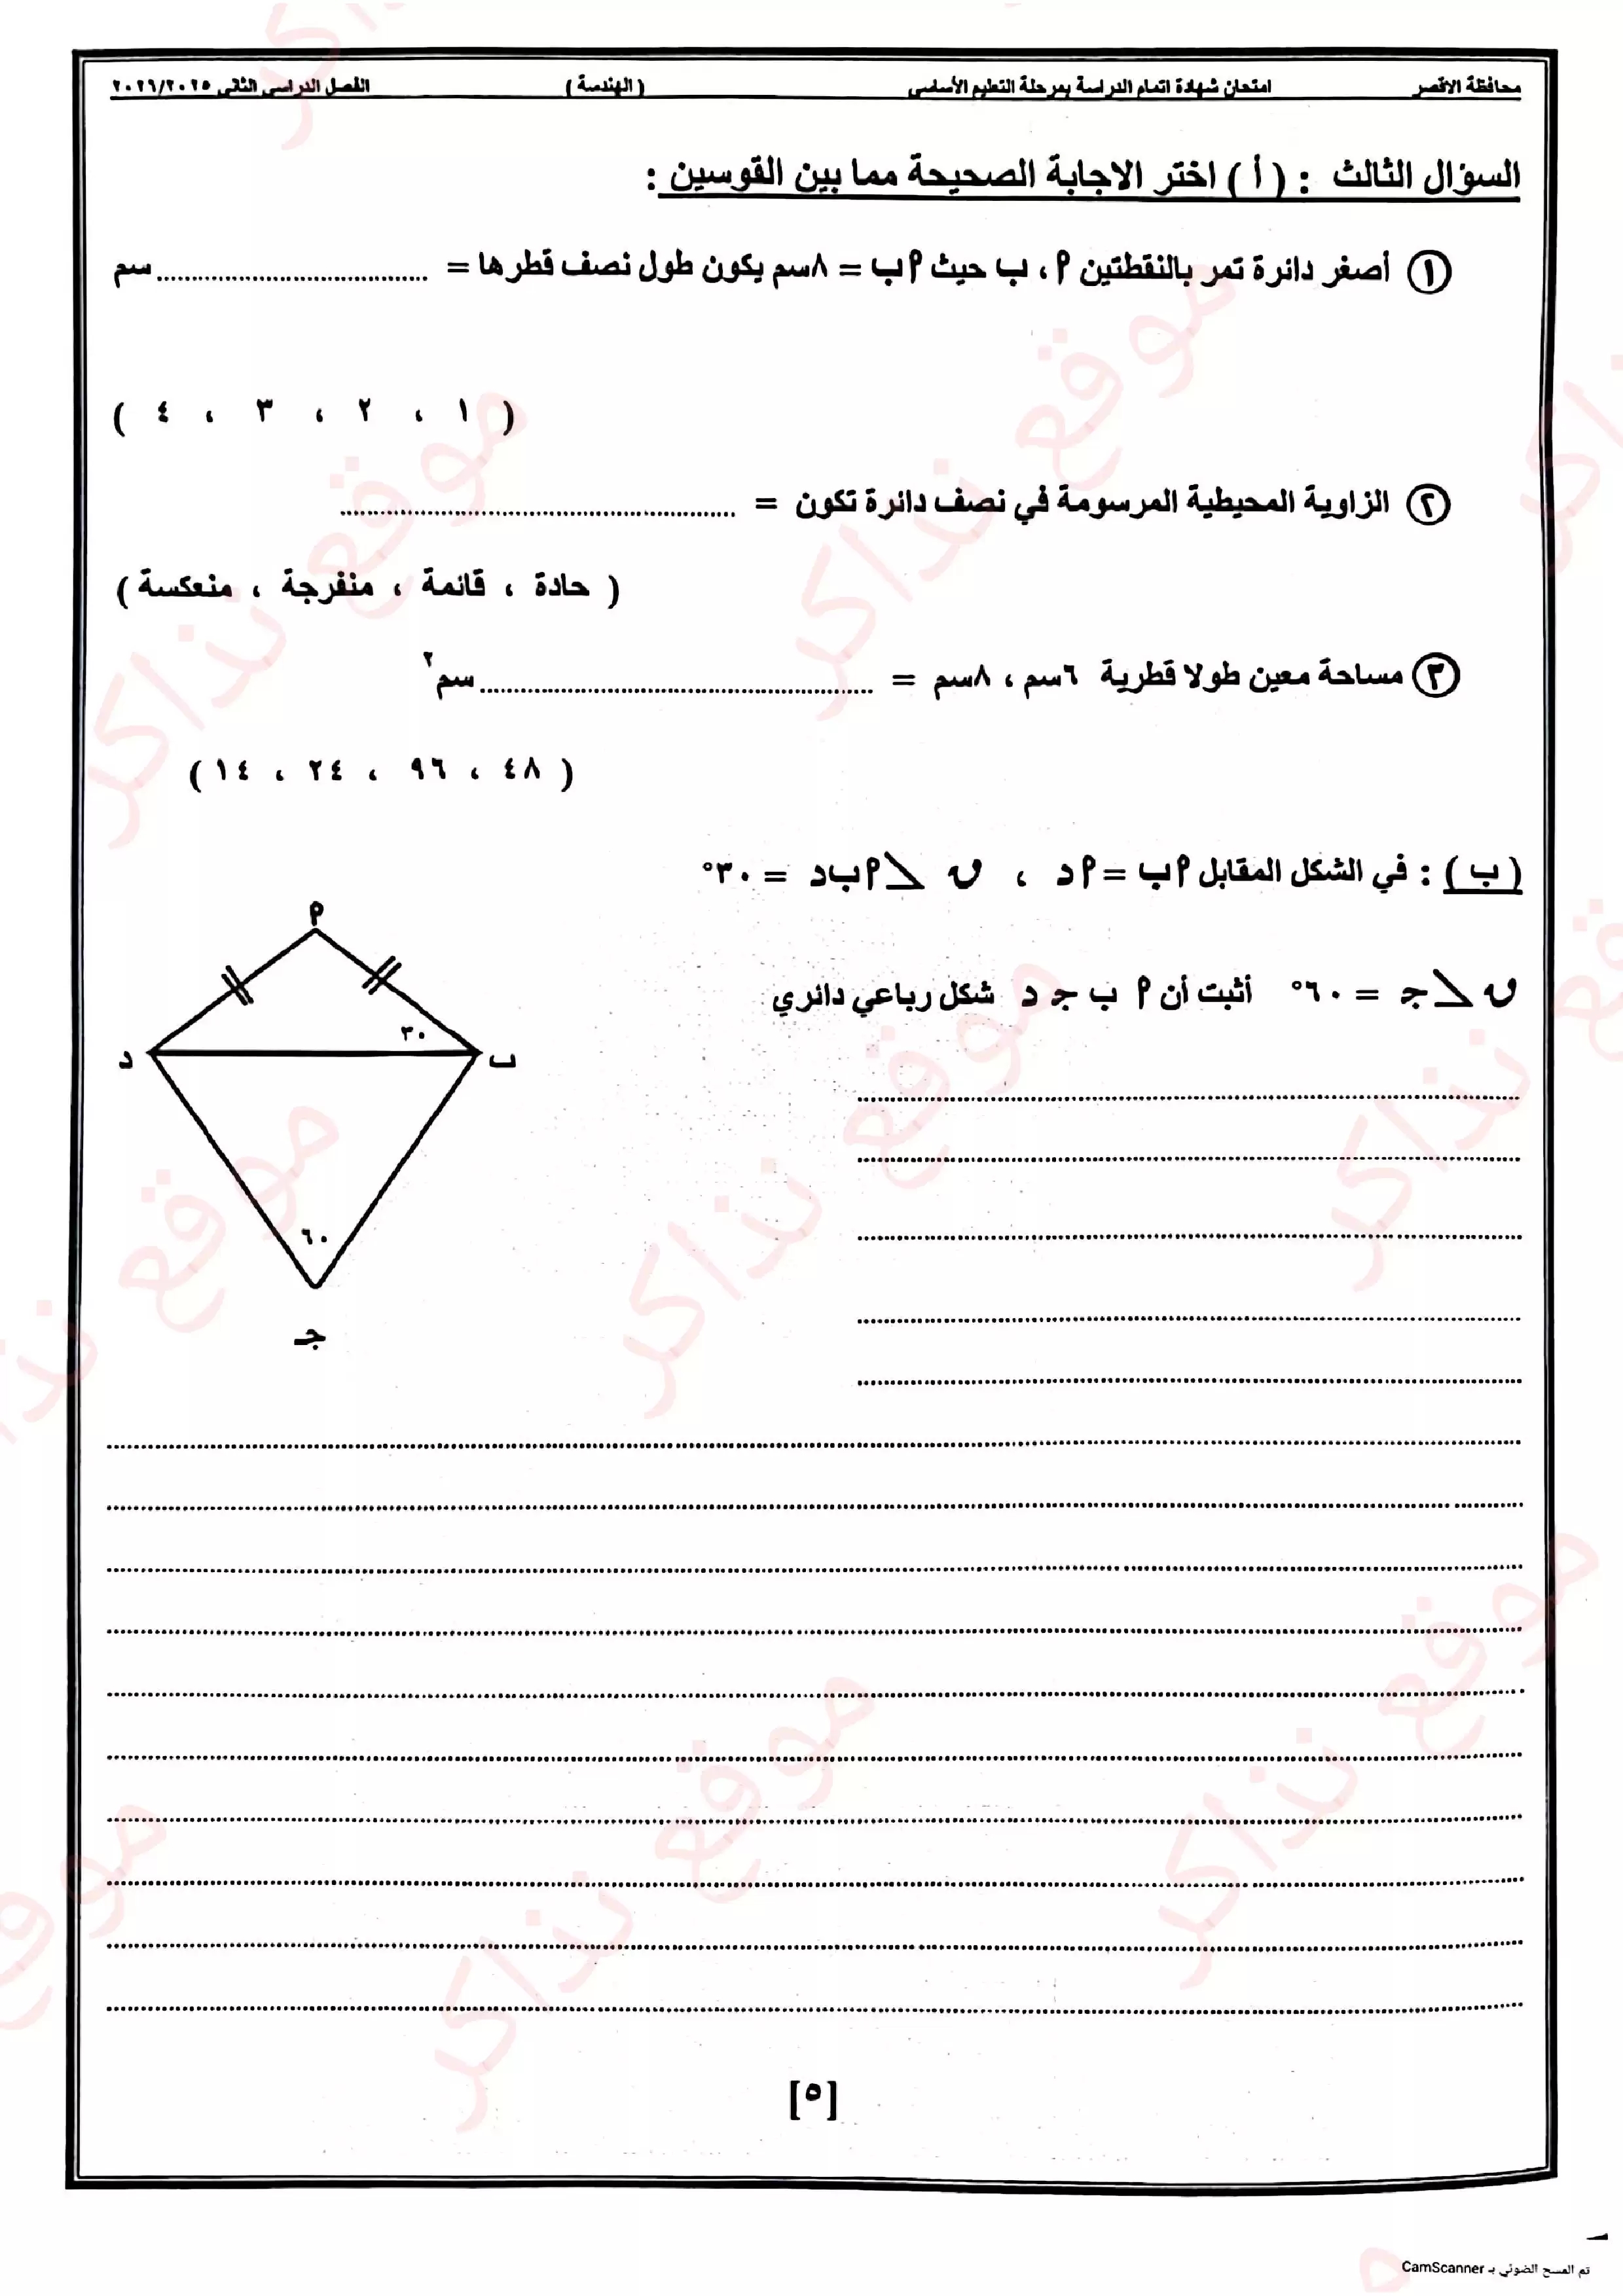 محافظة الاقصر امتحان شهادة اتمام الدراسة بمرحلة التعليم الأساسى (الهندسة) الفصل الدراسى الثانى ٢٠٢٦/٢٠٢٥
السؤال الثالث : ( أ ) اختر الاجابة الصحيحة مما بين القوسين :
١ أصغر دائرة تمر بالنقطتين م ، ب حيث م ب = ٨سم يكون طول نصف قطرها = ........................ سم
( ١ ، ٢ ، ٣ ، ٤ )
٢ الزاوية المحيطية المرسومة في نصف دائرة تكون = ........................
( حادة ، قائمة ، منفرجة ، منعكسة )
٣ مساحة معين طولا قطرية ٦سم ، ٨سم = ........................ سم٢
( ٤٨ ، ٩٦ ، ٢٤ ، ١٤ )
( ب ) : في الشكل المقابل م ب = م د ، ن ∠ م ب د = ٣٠°
ن ∠ ج = ٦٠° أثبت أن م ب ج د شكل رباعي دائري
م
٣٠
د
ب
٦٠
جـ
[٥]
تم المسح الضوئي بـ CamScanner
موقع نذاكر